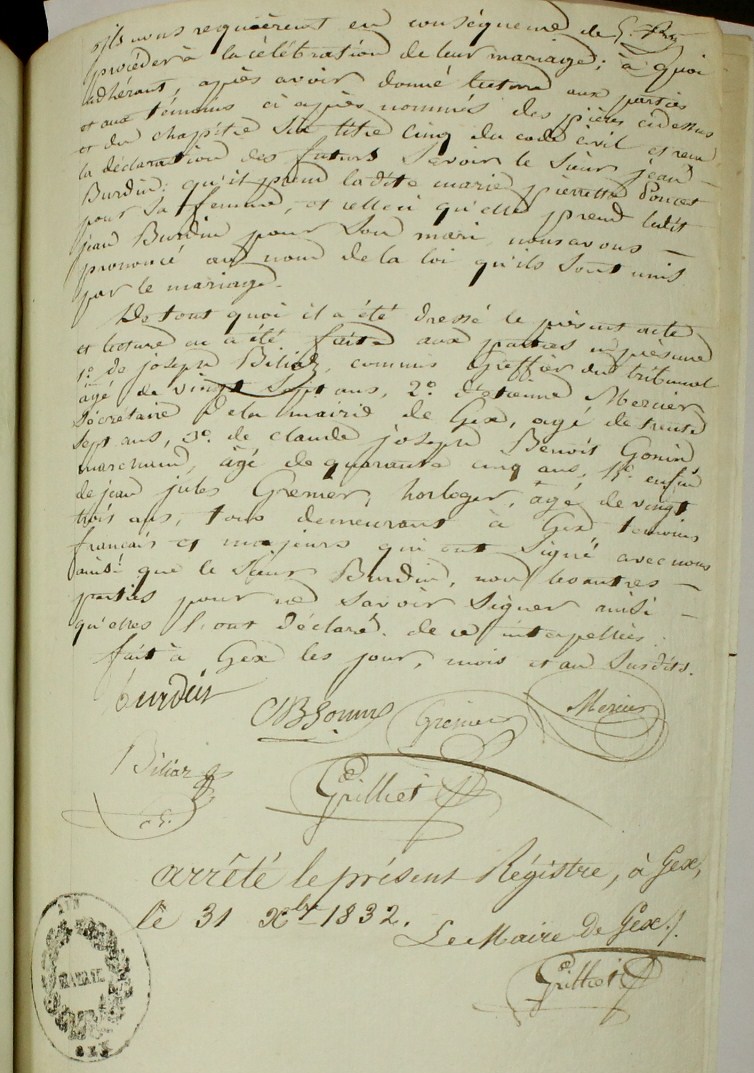 ils nous requièrent en conséquence de
procéder à la célébration de leur mariage; à quoi
adhérant, après avoir donné lecture aux parties
et aux témoins ci après nommés des pièces cidessus
et du chapitre six titre cinq du code civil et reçu
la déclaration des futurs Savoir le Sieur jean
Burdin: qu'il prend ladite marie pierrette Poncet
pour Sa femme, et celle ci qu'elle prend ledit
jean Burdin pour Son mari nous avons —
prononcé au nom de la loi qu'ils Sont unis
par le mariage.
De tout quoi il a été dressé le présent acte
et lecture en a été faite aux parties en présence
1o. de joseph Biliaz, commis Greffier du tribunal
âgé de vingt Sept ans, 2o. d'etienne Mercier
Sécrétaire de la mairie de Gex, agé de trente
Sept ans, 3o. de claude joseph Benoit Gonin
marchand, âgé de quarante cinq ans, 4o. enfin
de jean jules Grenier, horloger, âgé de vingt
trois ans, tous demeurant à Gex temoins
français et majeurs qui ont Signé avec nous
ainsi que le Sieur Burdin, non les autres —
parties pour ne Savoir Signer ainsi —
qu'elles l'ont déclaré. de ce interpellées.
fait à Gex les jour, mois et an Susdits.
burdin
CJBGonin Grenier Mercier
Biliaz
Grilliet
arrêté le présent Régistre, à Gex,
le 31 Xbre 1832.
Le Maire de Gex
Grilliet
MAIRIE
GEX